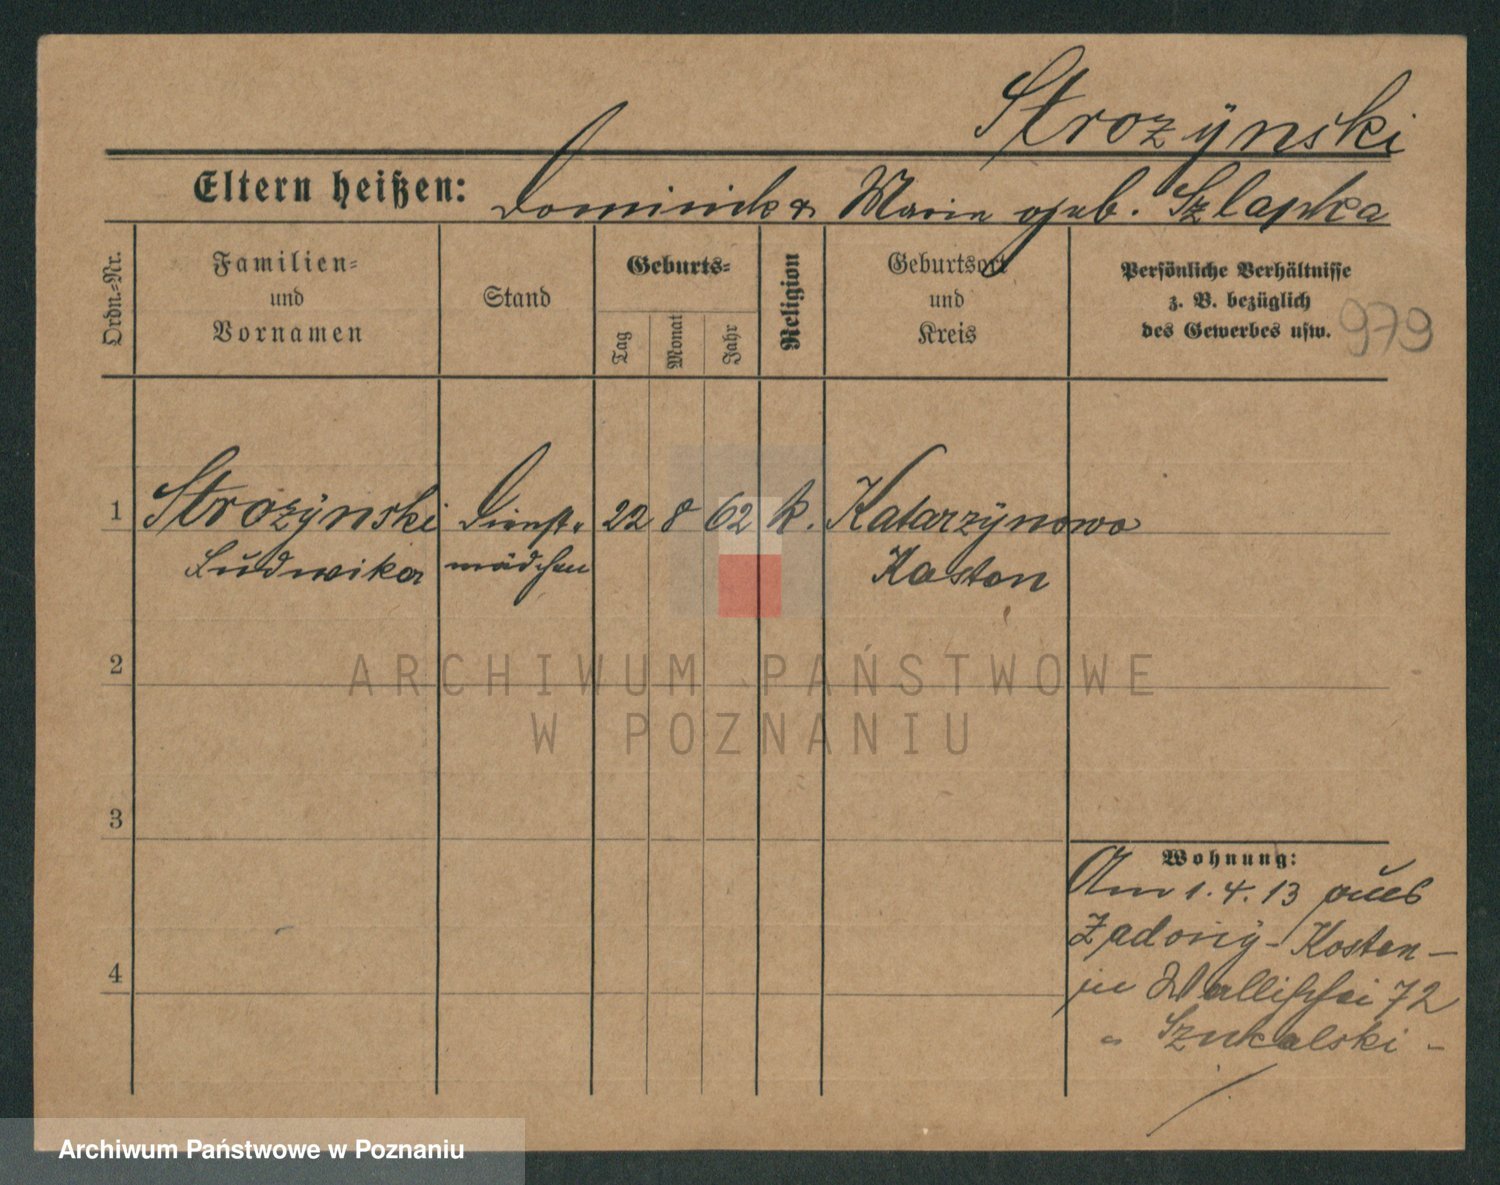 Strozÿnski
Eltern heißen: Dominik & Maria geb. Szlapka
Ordn.-Nr.
Familien-
und
Vornamen
Stand
Geburts-
Tag
Monat
Jahr
Religion
Geburtsort
und
Kreis
Persönliche Verhältnisse
z. B. bezüglich
des Gewerbes usw.
979
1 Strozÿnski Dienst- 22 8 62 k. Katarzÿnowo
Ludwika mädchen Kosten
2
ARCHIWUM PAŃSTWOWE
W POZNANIU
3
Wohnung:
Am 1.4.13 aus
Zadorÿ - Kosten -
in Wallischei 72
" Szukalski -
4
Archiwum Państwowe w Poznaniu